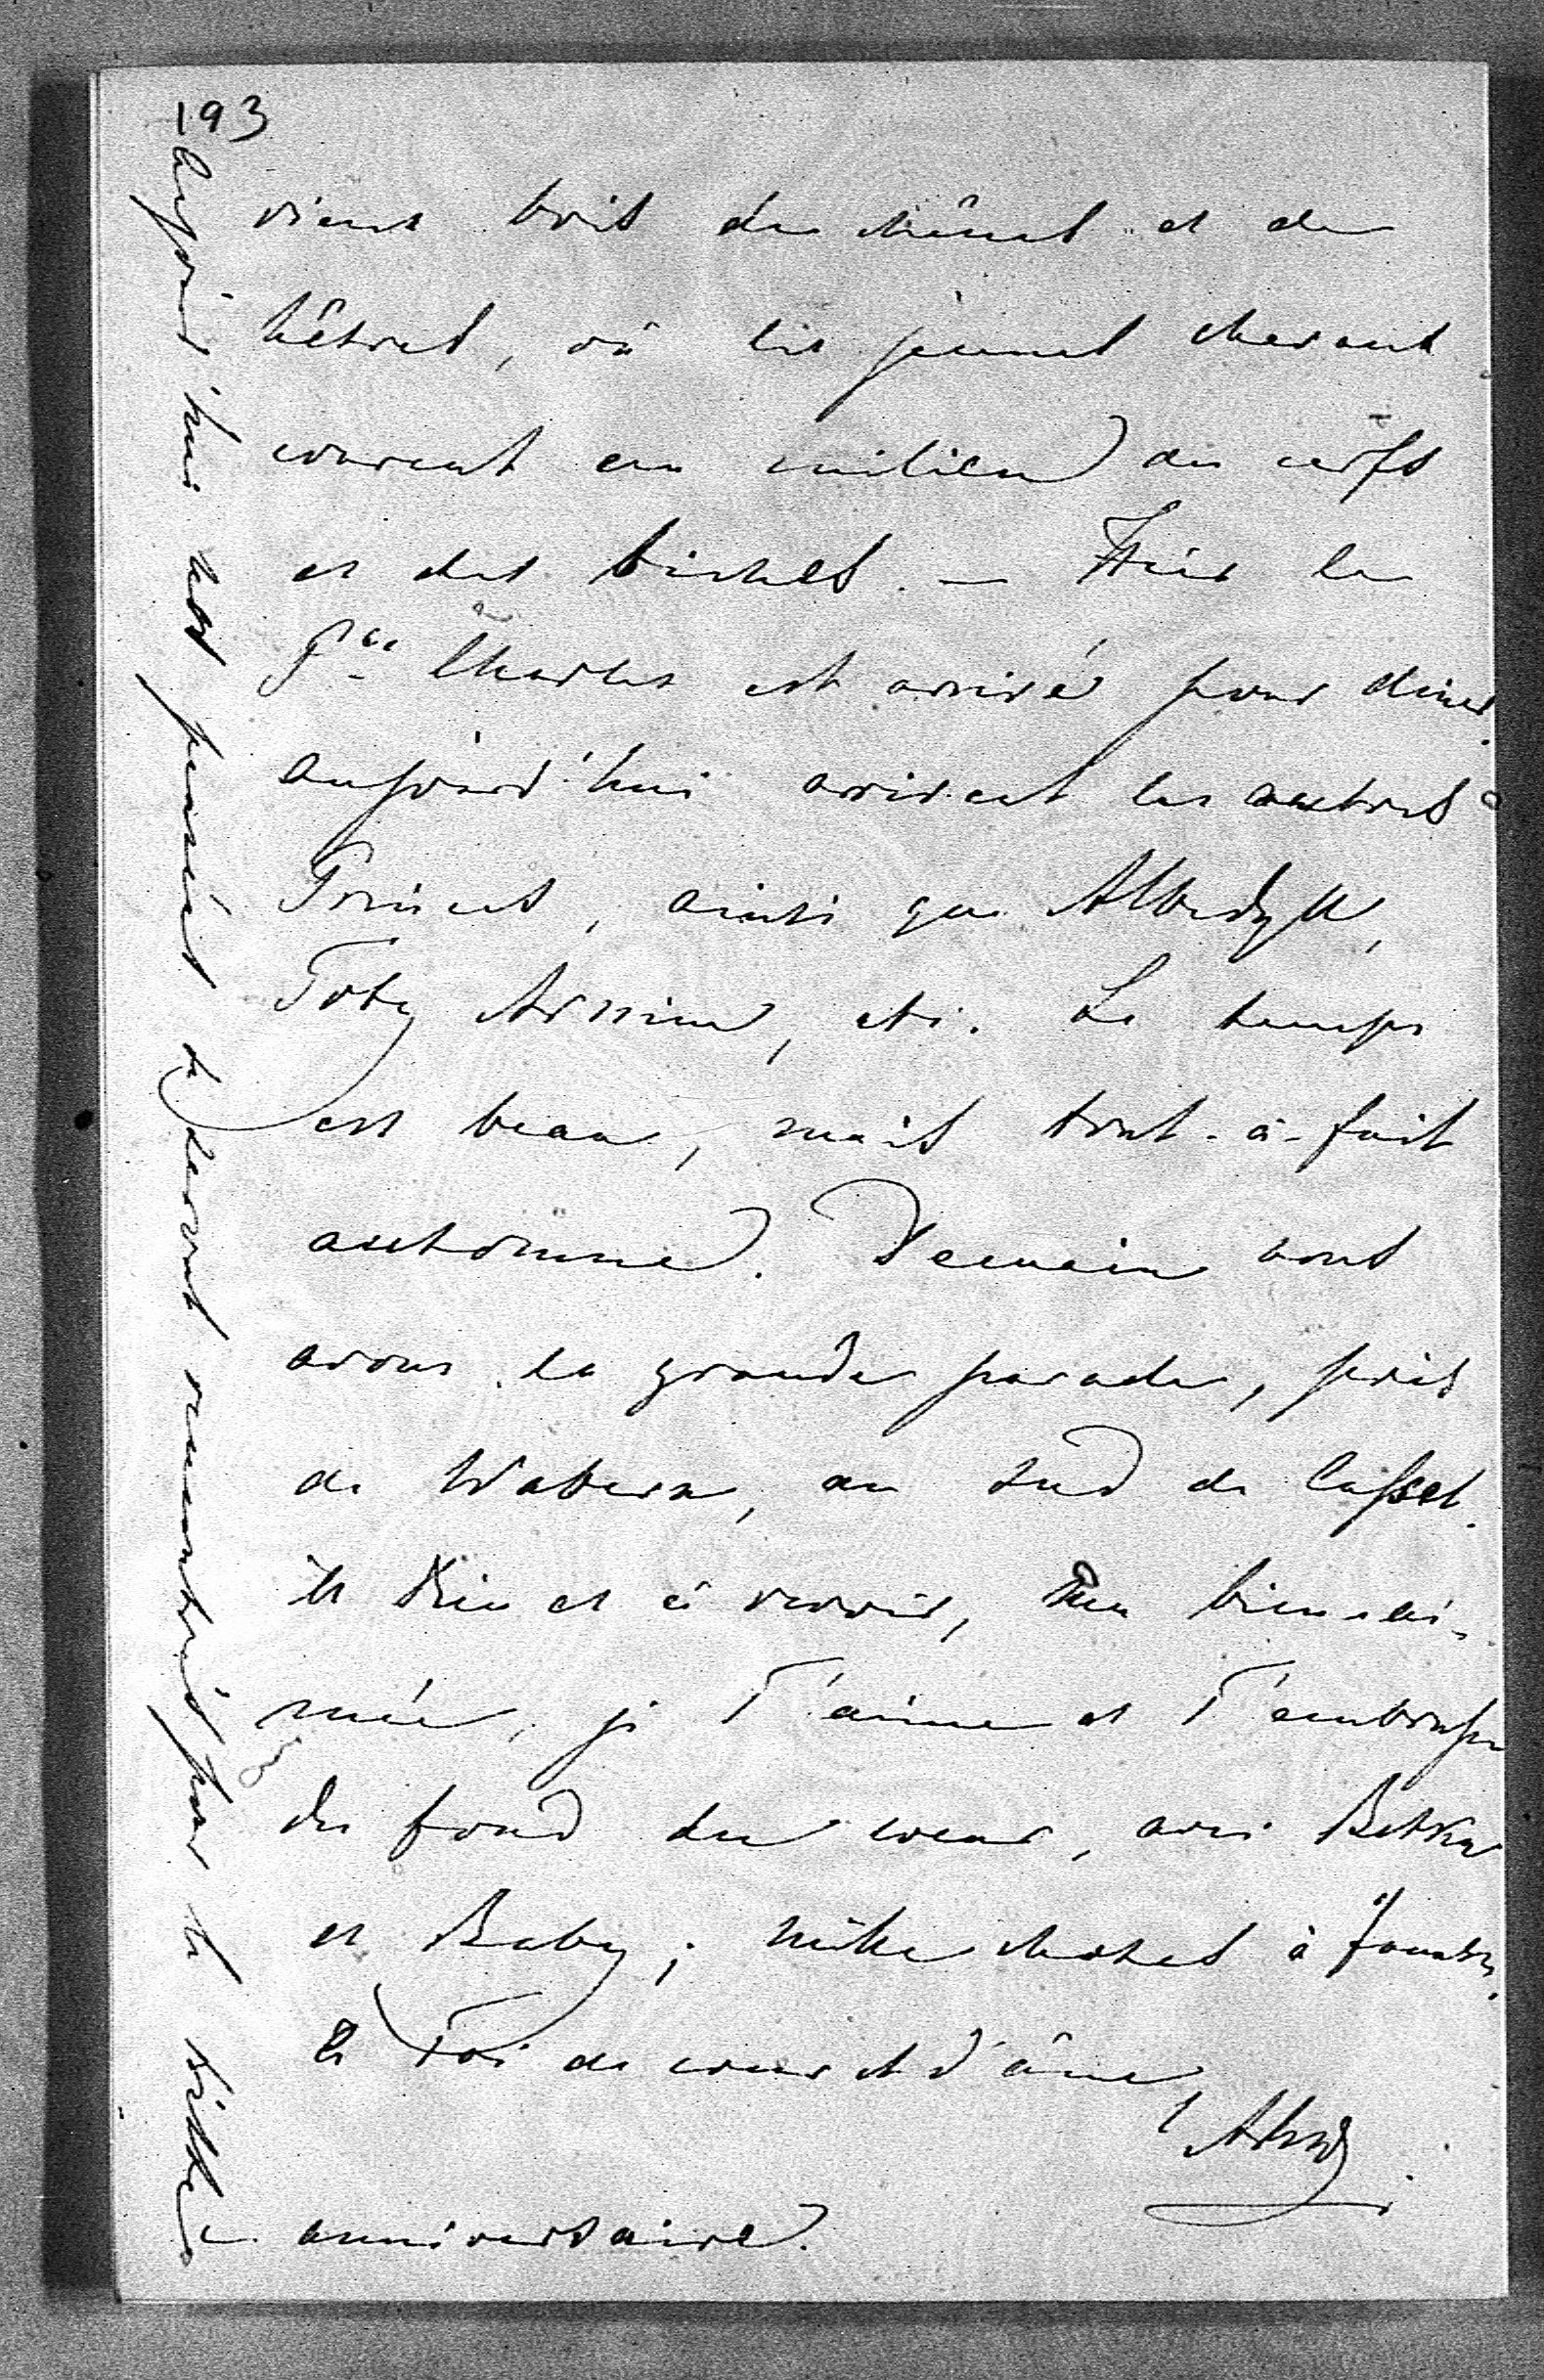 193
vieux bois de chênes et de
hêtres, où les jeunes chevaux
courent au milieu des cerfs
et des biches. — Hier le
Pce Charles est arrivé pour dîner.
aujourd'hui arrivent les autres
Princes, ainsi que Albedyll,
Toby Arnim, etc. Le temps
est beau, mais tout-à-fait
automne. Demain nous
avons la grande parade, près
de Wabern, au sud de Cassel.
À Dieu et à revoir, ma bien-ai-
mée, je T'aime et T'embrasse
du fond du cœur, avec Betsy
et Baby; mille choses à
à Toi de cœur et d'âme,
Alexdr
Aujourd'hui nos pensées se seront rencontrées pour le triste
anniversaire.